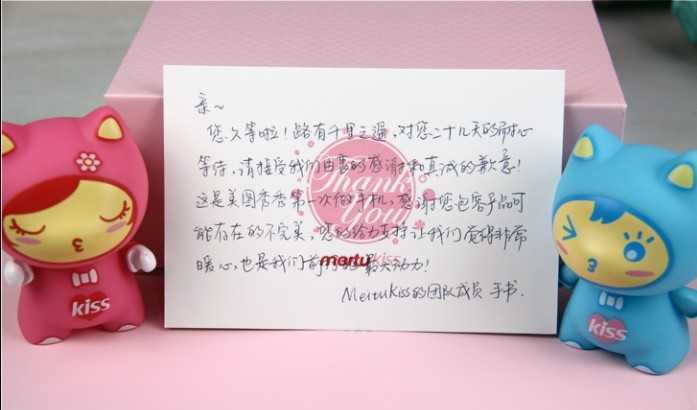 亲～
您久等啦！路有千里之遥，对您二十几天的耐心
等待，请接受我们由衷的感谢和真诚的歉意！
这是美图秀秀第一次做手机，感谢您包容产品可
能存在的不完美，您的给力支持让我们觉得非常
暖心，也是我们前行的最大动力！
MeituKiss的团队成员 手书.
Thank
You
meitukiss
kiss
kiss